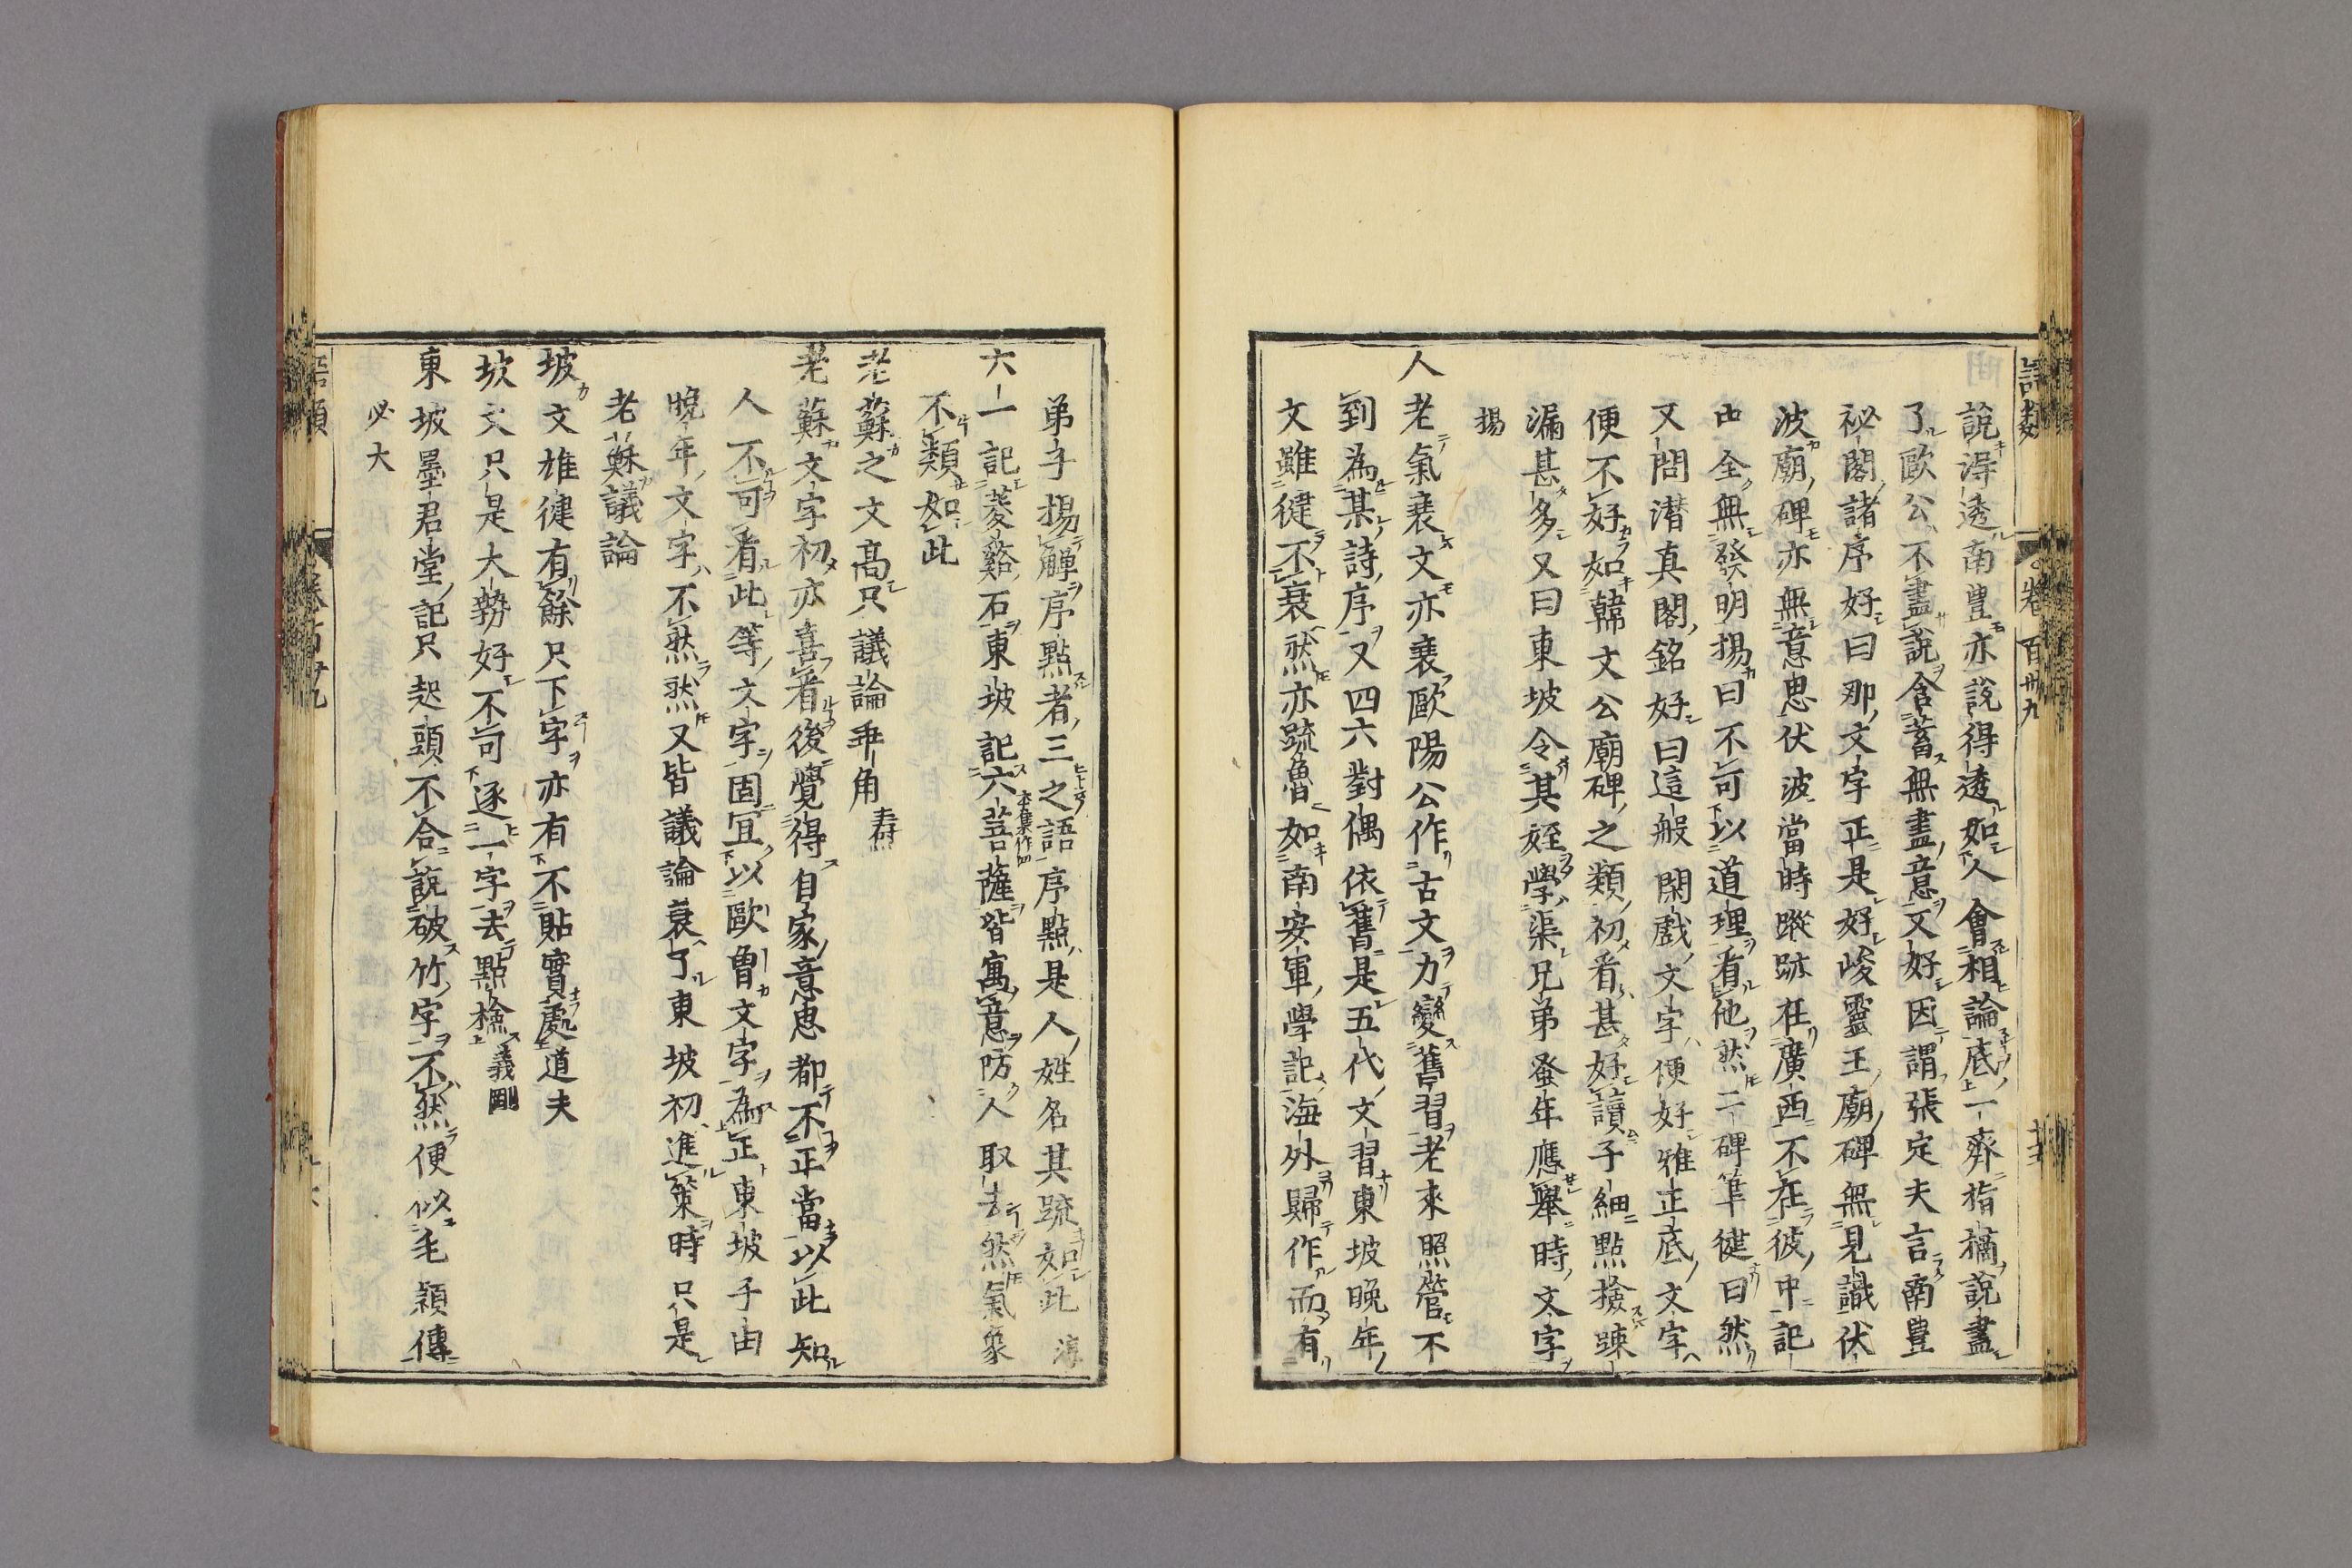 語類 卷百卅九
說得透南豊亦說得透如人會相論底一齊指摘說盡
了歐公不盡說含蓄無盡意又好因謂張定夫言南豊
祕閣諸序好曰那文字正是好峻靈王廟碑無見識伏
波廟碑亦無意思伏波當時蹤跡在廣西不在彼中記
中全無發明揚曰不可以道理看他然二碑筆健曰然
又問潛真閣銘好曰這般閑戲文字便好雅正底文字
便不好如韓文公廟碑之類初看甚好讀子細點撿疎
漏甚多又曰東坡令其姪學渠兄弟蚤年應舉時文字
揚
人老氣衰文亦衰歐陽公作古文力變舊習老來照管不
到為某詩序又四六對偶依舊是五代文習東坡晚年
文雖健不衰然亦疏魯如南安軍學記海外歸作而有
弟子揚觶序點者三之語序點是人姓名其疏如此 淳
六一記菱谿石東坡記六菩薩皆寓意防人取去然氣象
本集作四
不類如此
老蘇之文高只議論乖角 燾
老蘇文字初亦喜看後覺得自家意思都不正當以此知
人不可看此等文字固宜以歐曾文字為正東坡子由
晚年文字不然然又皆議論衰了東坡初進策時只是
老蘇議論
坡文雄健有餘只下字亦有不貼實處 道夫
坡文只是大勢好不可逐一字去點檢 義剛
東坡墨君堂記只起頭不合說破竹字不然便似毛穎傳
必大
語類